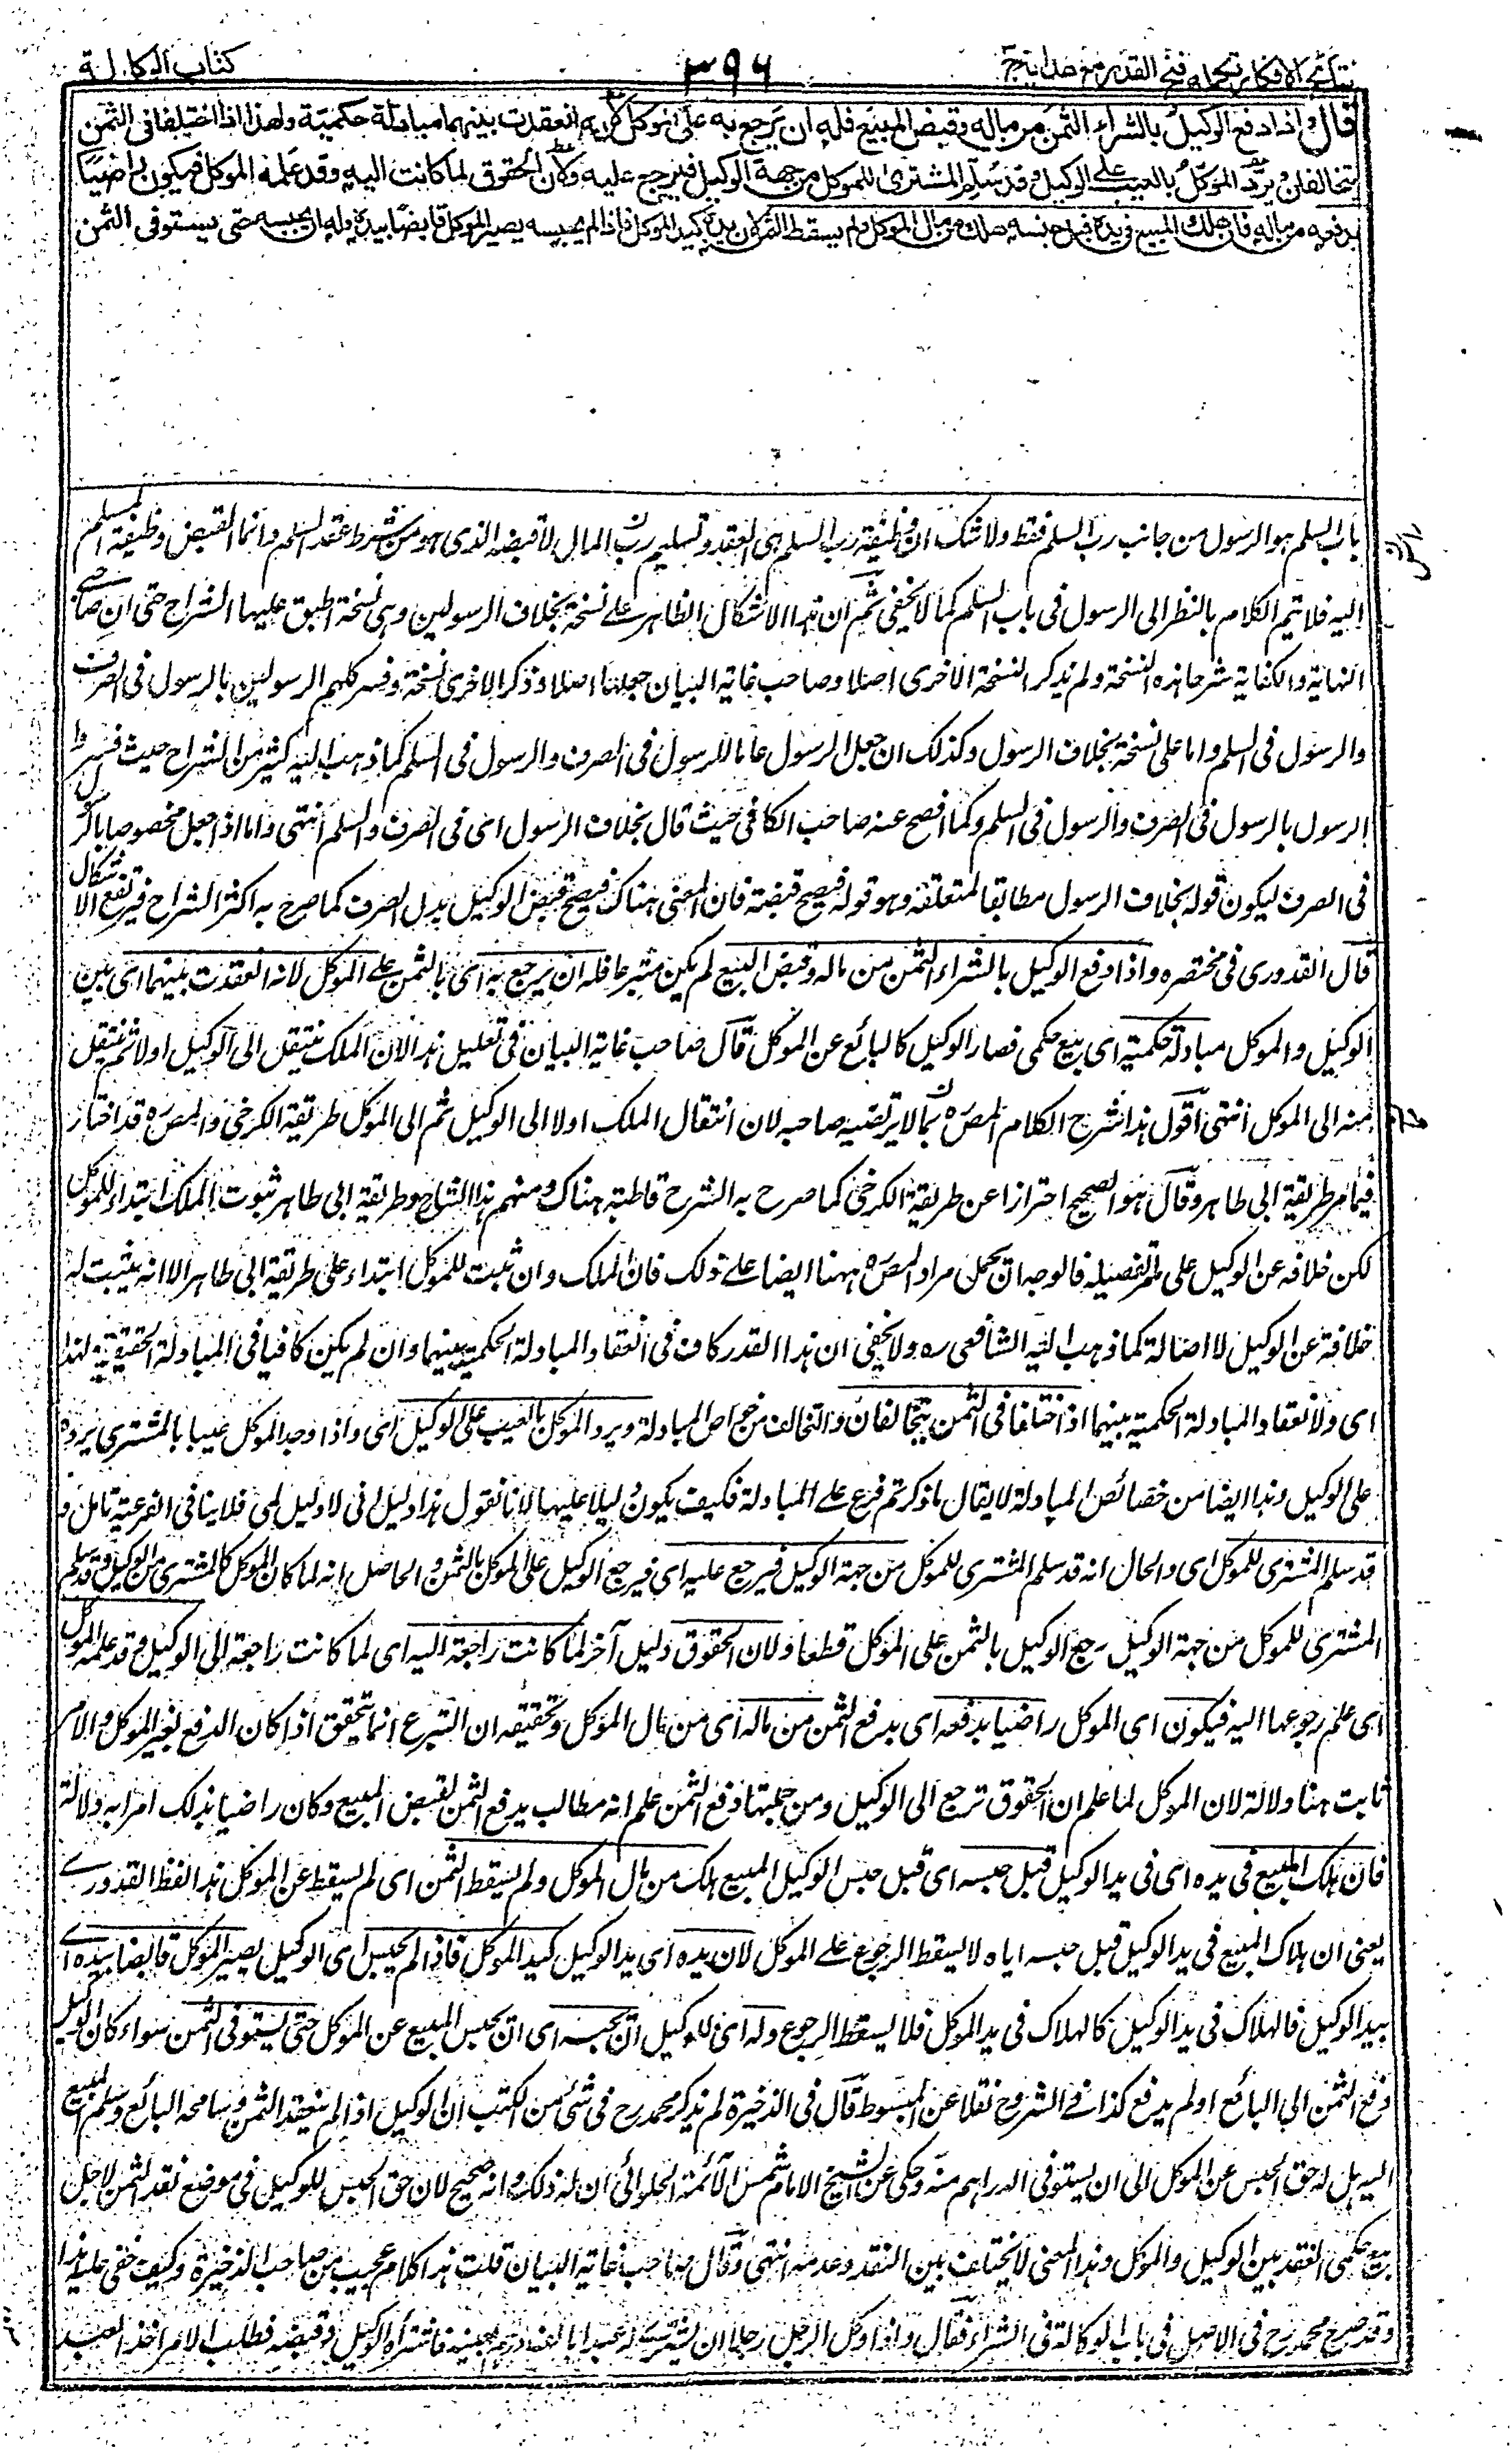 نتائج الافكار تكمله فتح القدير مع هدايه ج ٦
٣٩٦
كتاب الوكالة
قال واذا دفع الوكيل بالشراء الثمن من ماله وقبض المبيع فله ان يرجع به على الموكل لانه انعقدت بينهما مبادلة حكمية ولهذا اذا اختلفا فى الثمن
يتحالفان ويرد الموكل بالعيب على الوكيل وقد سلم المشترى للموكل من جهة الوكيل فيرجع عليه ولان الحقوق لما كانت اليه وقد علمه الموكل فيكون راضيا
بدفعه من ماله فان هلك المبيع فى يده قبل حبسه هلك من مال الموكل ولم يسقط الثمن لان يده كيد الموكل فاذا لم يحبسه يصير الموكل قابضا بيده وله ان يحبسه حتى يستوفى الثمن
باب السلم هو الرسول من جانب رب السلم فقط ولا شك ان وظيفة رب السلم هى العقد وتسليم رأس المال لا قبضه الذى هو من شرط عقد السلم وانما القبض وظيفة المسلم
اليه فلا يتم الكلام بالنظر الى الرسول فى باب السلم كما لا يخفى ثم ان هذا الاشكال الظاهر على نسخة بخلاف الرسولين وهى نسخة اطبق عليها الشراح حتى ان صاحبى
النهاية والكفاية شرحا هذه النسخة ولم يذكر النسخة الاخرى اصلا وصاحب غاية البيان جعلها اصلا وذكر الاخرى نسخة وفسر كلهم الرسولين بالرسول فى الصرف
والرسول فى السلم واما على نسخة بخلاف الرسول وكذلك ان جعل الرسول عاما للرسول فى الصرف والرسول فى السلم كما ذهب اليه كثير من الشراح حيث فسروا
الرسول بالرسول فى الصرف والرسول فى السلم وكما افصح عنه صاحب الكافى حيث قال بخلاف الرسول اى فى الصرف والسلم انتهى واما اذا جعل مخصوصا بالرسول
فى الصرف ليكون قوله بخلاف الرسول مطابقا لمتعلقه وهو قوله فيصح قبضه فان المعنى هناك فيصح قبض الوكيل بدل الصرف كما صرح به اكثر الشراح فيرتفع الاشكال
قال القدورى فى مختصره واذا دفع الوكيل بالشراء الثمن من ماله وقبض المبيع لم يكن متبرعا فله ان يرجع به اى بالثمن على الموكل لانه انعقدت بينهما اى بين
الوكيل والموكل مبادلة حكمية اى بيع حكمى فصار الوكيل كالبائع عن الموكل قال صاحب غاية البيان فى تعليل هذا لان الملك ينتقل الى الوكيل اولا ثم ينتقل
منه الى الموكل انتهى اقول هذا شرح الكلام المصنف بما لا يرتضيه صاحبه لان انتقال الملك اولا الى الوكيل ثم الى الموكل طريقة الكرخى والمصنف قد اختار
فيما مر طريقة ابى طاهر وقال هو الصحيح احترازا عن طريقة الكرخى كما صرح به الشرح قاطبة هناك ومنهم هذا الشارح وطريقة ابى طاهر ثبوت الملك ابتداء للموكل
لكن خلافة عن الوكيل على ما مر تفصيله فالوجه ان يحمل مراد المصنف ههنا ايضا على ذلك فان الملك وان ثبت للموكل ابتداء على طريقة ابى طاهر الا انه يثبت له
خلافة عن الوكيل لا اصالة كما ذهب اليه الشافعى ره ولا يخفى ان هذا القدر كاف فى انعقاد المبادلة الحكمية بينهما وان لم يكن كافيا فى المبادلة الحقيقية لهذا
اى ولانعقاد المبادلة الحكمية بينهما اذا اختلفا فى الثمن يتحالفان والتحالف من خواص المبادلة ويرد الموكل بالعيب على الوكيل اى واذا وجد الموكل عيبا بالمشترى يرده
على الوكيل وهذا ايضا من خصائص المبادلة لا يقال ما ذكرتم فرع على المبادلة فكيف يكون دليلا عليها لانا نقول هذا دليل انى لا دليل لمى فلا ينافى الفرعية تأمل و
قد سلم المشترى للموكل اى والحال انه قد سلم المشترى للموكل من جهة الوكيل فيرجع عليه اى فيرجع الوكيل على الموكل بالثمن والحاصل انه لما كان الموكل كالمشترى من الوكيل وقد سلم
المشترى للموكل من جهة الوكيل رجع الوكيل بالثمن على الموكل قطعا ولان الحقوق دليل آخر لما كانت راجعة اليه اى لما كانت راجعة الى الوكيل وقد علمه الموكل
اى علم رجوعها اليه فيكون اى الموكل راضيا بدفعه اى بدفع الثمن من ماله اى من مال الموكل وتحقيقه ان التبرع انما يتحقق اذا كان الدفع بغير الموكل والامر
ثابت هنا دلالة لان الموكل لما علم ان الحقوق ترجع الى الوكيل ومن جملتها دفع الثمن علم انه مطالب بدفع الثمن لقبض المبيع وكان راضيا بذلك امرا به دلالة
فان هلك المبيع فى يده اى فى يد الوكيل قبل حبسه اى قبل حبس الوكيل المبيع هلك من مال الموكل ولم يسقط الثمن اى لم يسقط عن الموكل هذا لفظ القدورى
يعنى ان هلاك المبيع فى يد الوكيل قبل حبسه اياه لا يسقط الرجوع على الموكل لان يده اى يد الوكيل كيد الموكل فاذا لم يحبس اى الوكيل يصير الموكل قابضا بيده اى
بيد الوكيل فالهلاك فى يد الوكيل كالهلاك فى يد الموكل فلا يسقط الرجوع وله اى للوكيل ان يحبسه اى ان يحبس المبيع عن الموكل حتى يستوفى الثمن سواء كان الوكيل
دفع الثمن الى البائع او لم يدفع كذا فى الشروح نقلا عن المبسوط قال فى الذخيرة لم يذكر محمد رح فى شئ من الكتب ان الوكيل اذا لم ينقد الثمن وسامحه البائع وسلم المبيع
اليه هل له حق الحبس عن الموكل الى ان يستوفى الدراهم منه وحكى عن الشيخ الامام شمس الائمة الحلوائى ان له ذلك وانه صحيح لان حق الحبس للوكيل فى موضع نقد الثمن لاجل
بيع حكمى انعقد بين الوكيل والموكل وهذا المعنى لا يختلف بين النقد وعدمه انتهى وقال صاحب غاية البيان قلت هذا كلام عجيب من صاحب الذخيرة وكيف خفى عليه هذا
وقد صرح محمد رح فى الاصل فى باب الوكالة فى الشراء فقال واذا وكل الرجل رجلا ان يشترى له عبدا بالف درهم بعينه فاشتراه الوكيل وقبضه فطلب الامر اخذ العبد